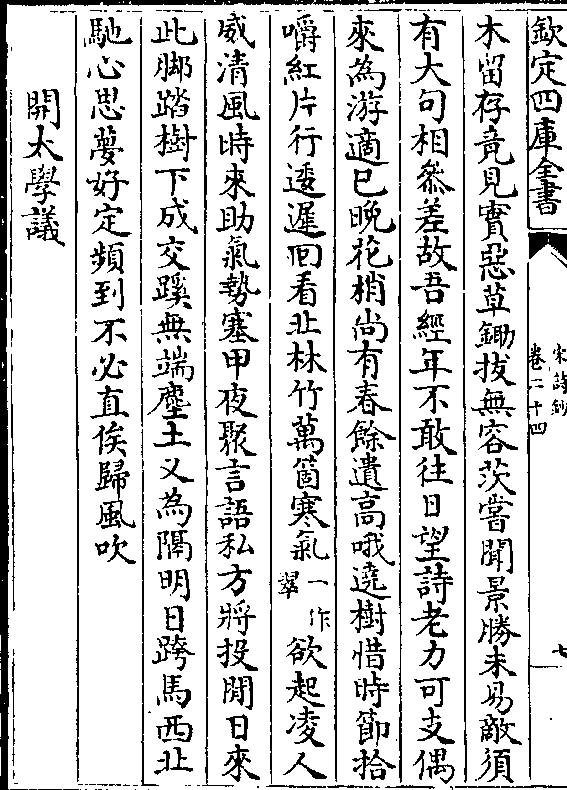 欽定四庫全書
宋詩鈔
卷二十四
七
木留存竟見實惡草鋤拔無容茨嘗聞景勝未易敵須
有大句相叅差故吾經年不敢往日望詩老力可支偶
來為游適已晚花梢尚有春餘遺高哦遶樹惜時節拾
嚼紅片行逶遲回看北林竹萬箇寒氣一作翠欲起凌人
威清風時來助氣勢塞甲夜聚言語私方將投閒日來
此脚踏樹下成交蹊無端塵土又為隔明日跨馬西北
馳心思夢好定頻到不必直俟歸風吹
開太學議